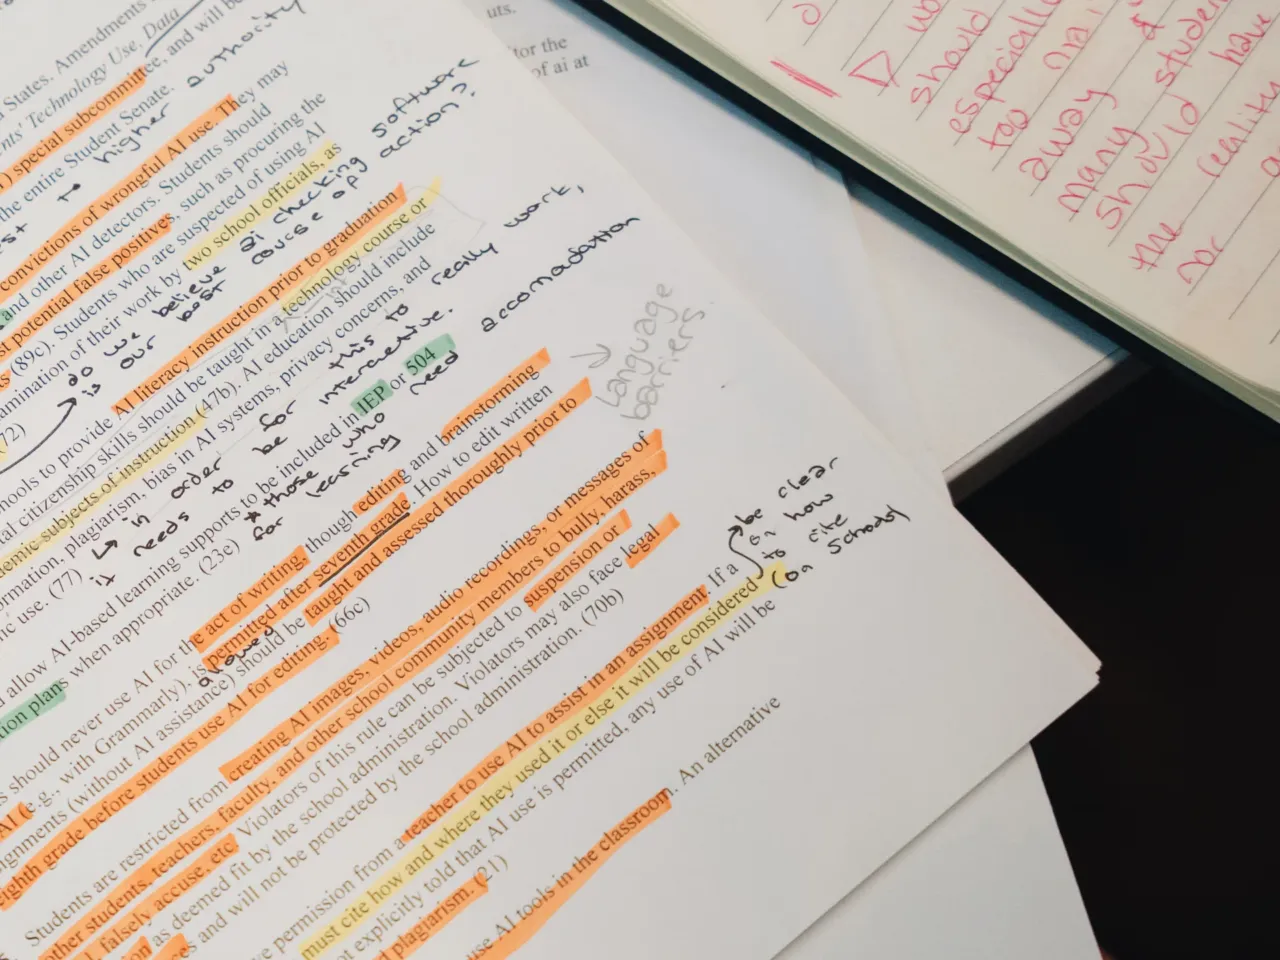 States. Amendments
ents' Technology Use, Data
) special subcommittee, and will be
the entire Student Senate.
→ higher authority
convictions of wrongful AI use. They may
and other AI detectors. Students should
st potential false positives, such as procuring the
(89c). Students who are suspected of using AI
amination of their work by two school officials, as
72)
do we believe ai checking software
is our best course of action?
hools to provide AI literacy instruction prior to graduation
al citizenship skills should be taught in a technology course or
demic subjects of instruction (47b). AI education should include
ormation, plagiarism, bias in AI systems, privacy concerns, and
ic use. (77)
↳ in order for this to really work,
it needs to be interactive.
allow AI-based learning supports to be included in IEP or 504
tion plans when appropriate. (23e)
* those who need accomadation
for learning
s should never use AI for the act of writing, though editing and brainstorming
AI (e.g., with Grammarly), is permitted after seventh grade. How to edit written
allowed
signments (without AI assistance) should be taught and assessed thoroughly prior to
eighth grade before students use AI for editing. (66c)
Language
barriers.
Students are restricted from creating AI images, videos, audio recordings, or messages of
other students, teachers, faculty, and other school community members to bully, harass,
, falsely accuse, etc. Violators of this rule can be subjected to suspension or
on as deemed fit by the school administration. Violators may also face legal
s and will not be protected by the school administration. (70b)
ve permission from a teacher to use AI to assist in an assignment. If a
must cite how and where they used it or else it will be considered
ot explicitly told that AI use is permitted, any use of AI will be
d plagiarism. (21)
be clear
on how
to cite
(on school
use AI tools in the classroom. An alternative
uts.
tor the
of ai at
should
especially
too
away
many students
should have
the reality